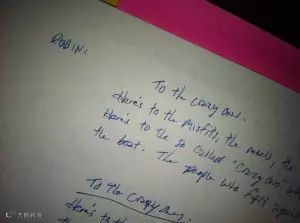 ROBIN:
To the Crazy Ones.
Here's to the misfits, the rebels, the
Here's to the so called "crazy ones" who
the boat. The people who fight
To the Crazy Ones.
Here's to
大数跨境